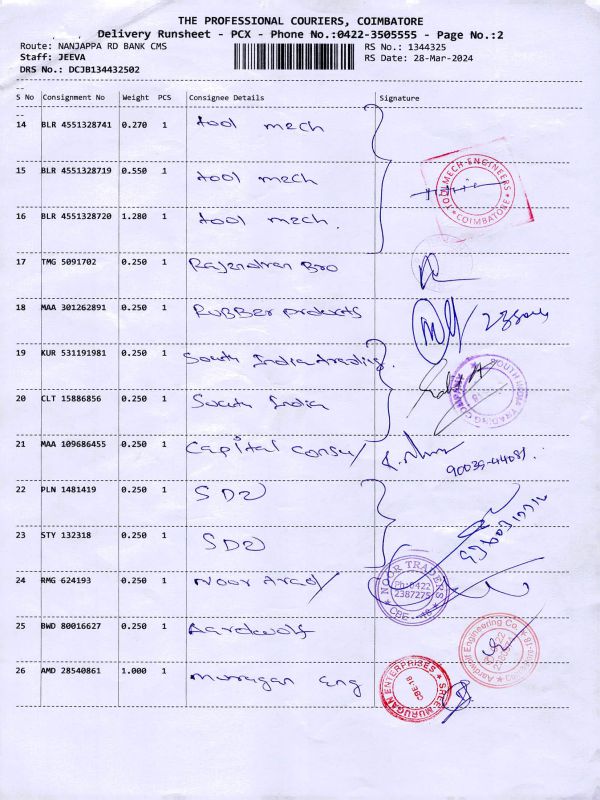 THE PROFESSIONAL COURIERS, COIMBATORE
Delivery Runsheet - PCX - Phone No.:0422-3505555 - Page No.:2
Route: NANJAPPA RD BANK CMS RS No.: 1344325
Staff: JEEVA RS Date: 28-Mar-2024
DRS No.: DCJB134432502
S No Consignment No Weight PCS Consignee Details Signature
14 BLR 4551328741 0.270 1 tool mech
15 BLR 4551328719 0.550 1 tool mech
TOOL MECH ENGINEERS * COIMBATORE *
16 BLR 4551328720 1.280 1 tool mech.
17 TMG 5091702 0.250 1 Rajendran Bro
18 MAA 301262891 0.250 1 RUBBER Products
19 KUR 531191981 0.250 1 South India trading.
SOUTH INDIA TRADING COMPANY
20 CLT 15886856 0.250 1 South India
21 MAA 109686455 0.250 1 Capital Consu/
90039-44081.
22 PLN 1481419 0.250 1 SD2
23 STY 132318 0.250 1 SD2
24 RMG 624193 0.250 1 Noor trad/
NOOR TRADERS Ph:0422 2387275 * CBE - 18 *
25 BWD 80016627 0.250 1 Aardwolf
Aardwolf Engineering Co.
26 AMD 28540861 1.000 1 murugan Eng
SREE MURUGAN ENTERPRISES CBE-18